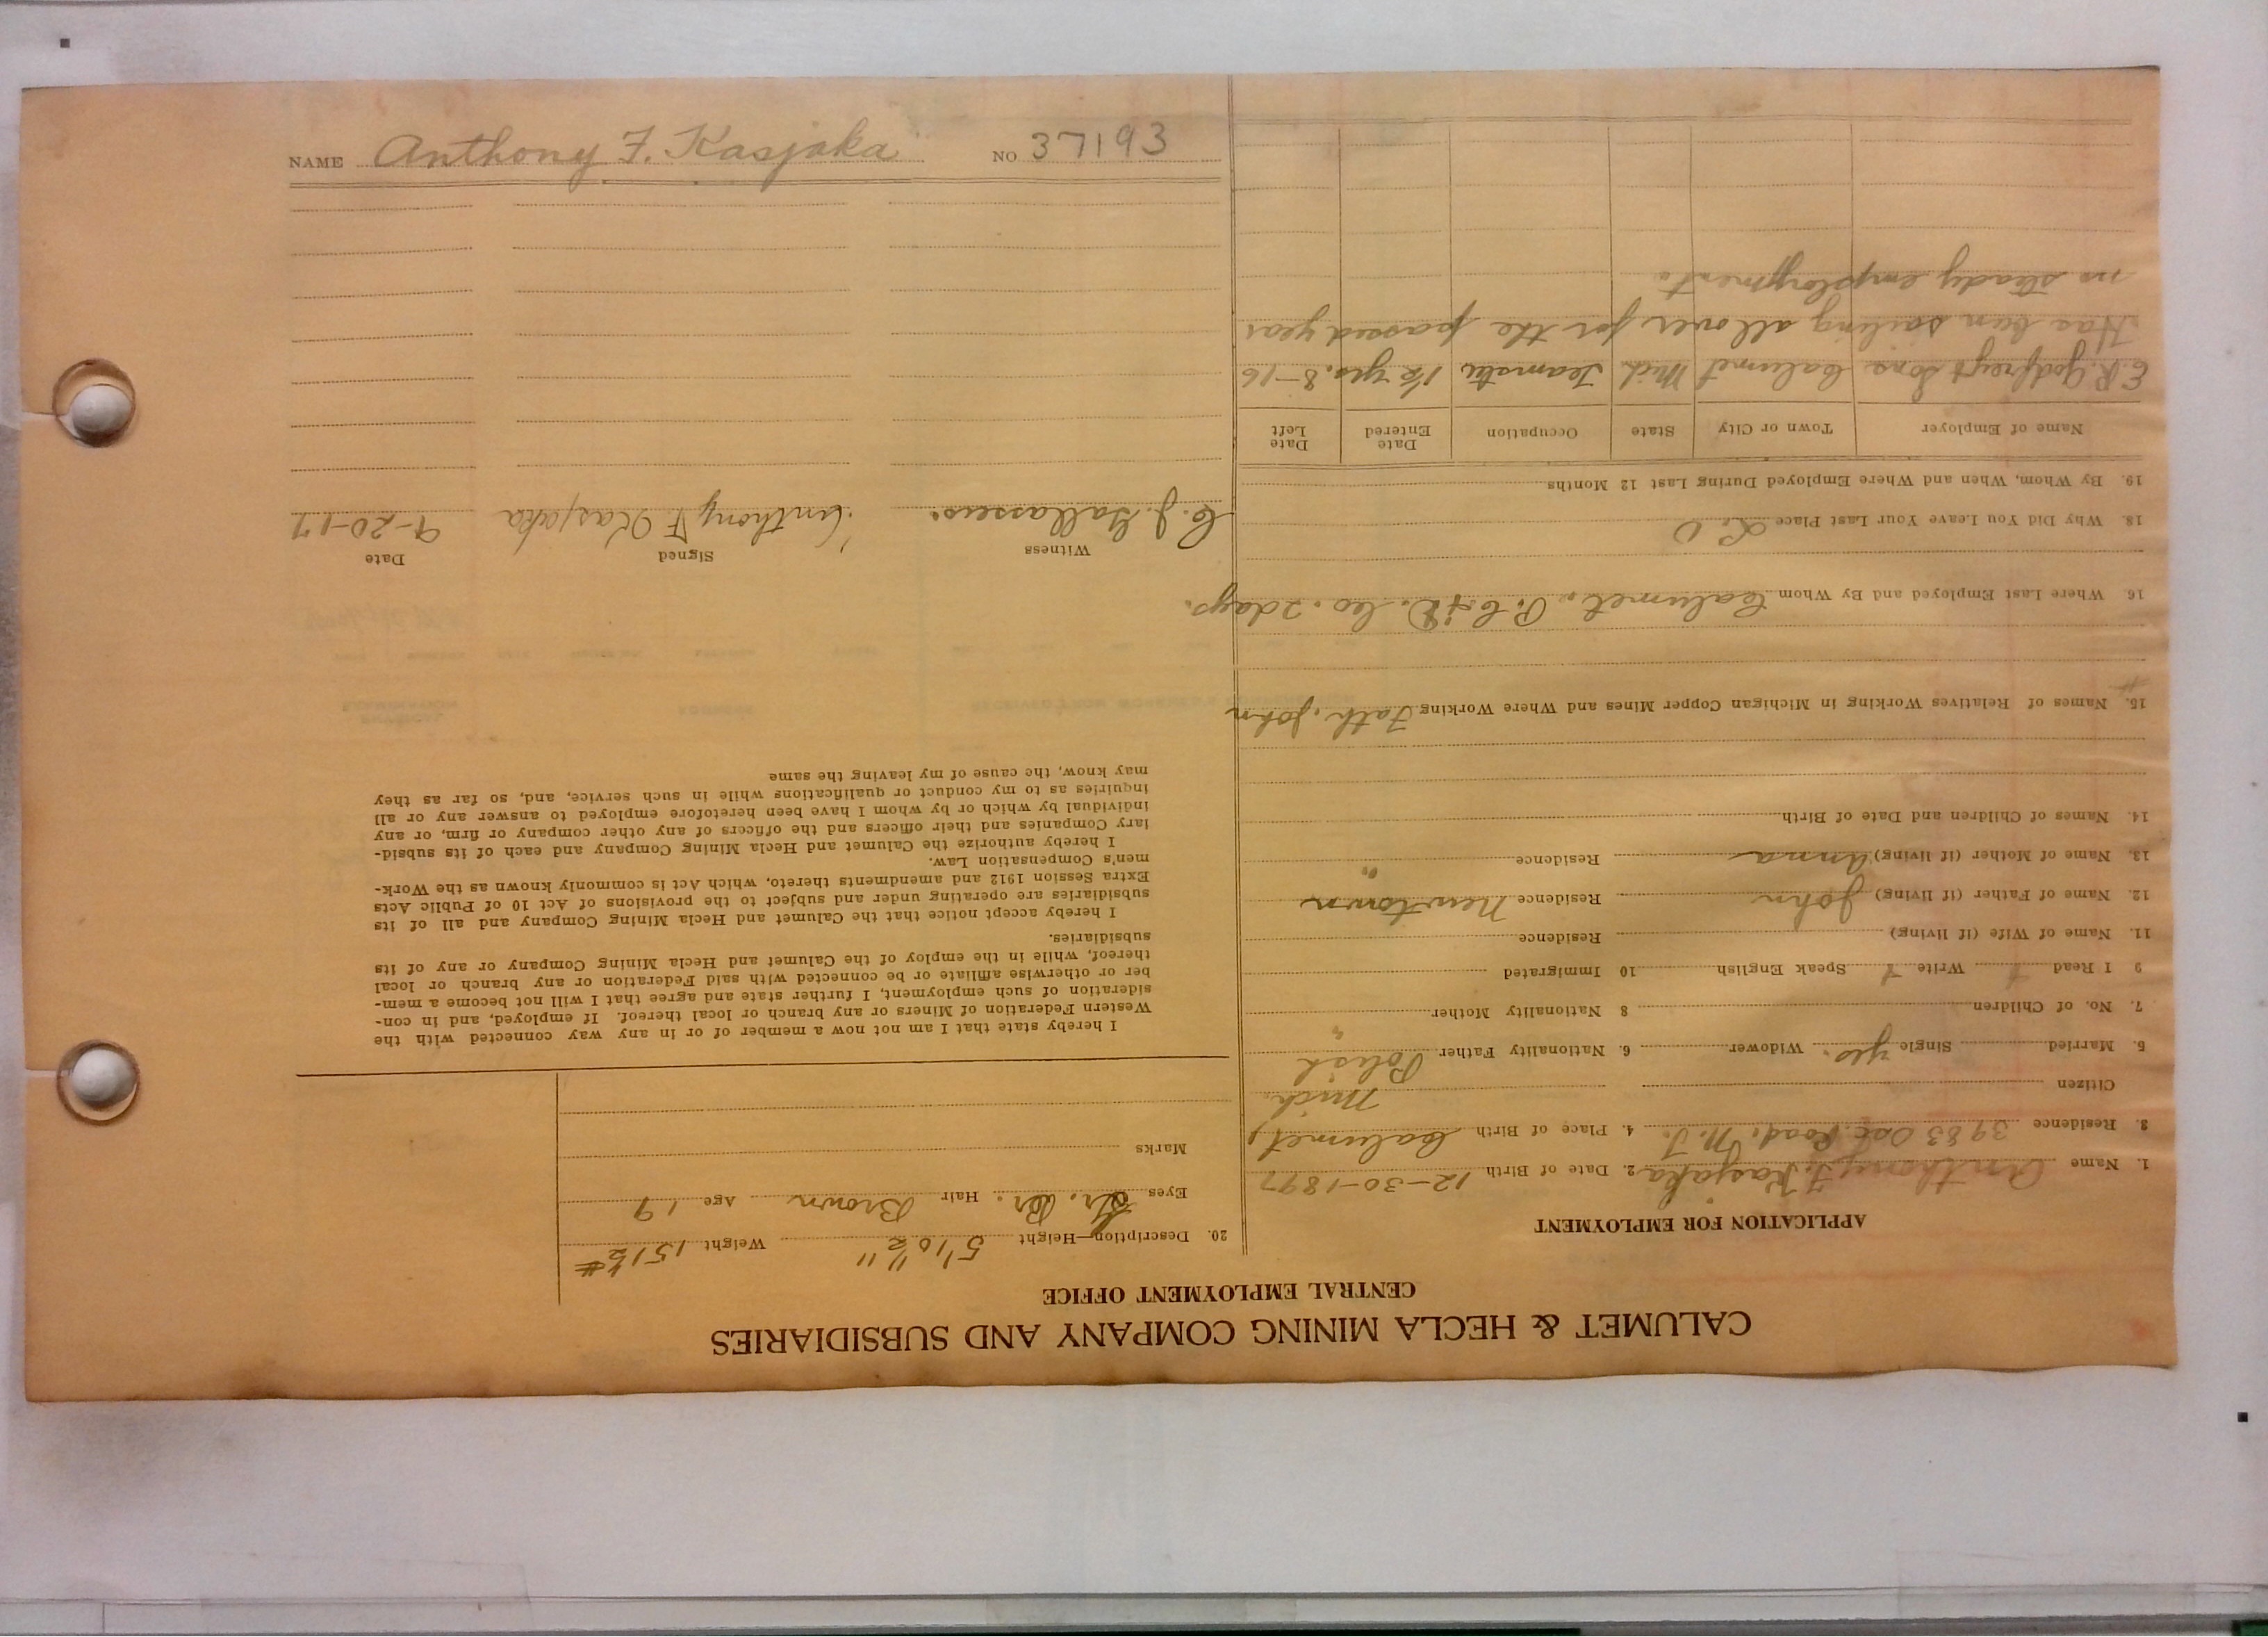 CALUMET & HECLA MINING COMPANY AND SUBSIDIARIES
CENTRAL EMPLOYMENT OFFICE
APPLICATION FOR EMPLOYMENT
1. Name Anthony F. Kasjaka 2. Date of Birth 12-30-1897
3. Residence 3983 Oac. Road. N.T. 4. Place of Birth Calumet,
Mich.
Citizen
5. Married Single yes. Widower 6. Nationality Father Polish
7. No. of Children 8 Nationality Mother "
9 I Read Write Speak English 10 Immigrated
11. Name of Wife (if living) Residence
12. Name of Father (if living) John Residence Newtown
13. Name of Mother (if living) Anna Residence "
14. Names of Children and Date of Birth
15. Names of Relatives Working in Michigan Copper Mines and Where Working Fath. John
16 Where Last Employed and By Whom Calumet, P. C. & D. Co. 2 days.
18. Why Did You Leave Your Last Place
19. By Whom, When and Where Employed During Last 12 Months
Name of Employer Town or City State Occupation Date Entered Date Left
E. R. Godfrey & Sons Calumet Mich Teamster 1½ yrs. 8-16
Has been sailing all over for the passed year
no steady employment.
20. Description—Height 5'10½" Weight 151½#
Eyes Gr. Br. Hair Brown Age 19
Marks
I hereby state that I am not now a member of or in any way connected with the
Western Federation of Miners or any branch or local thereof. If employed, and in con-
sideration of such employment, I further state and agree that I will not become a mem-
ber or otherwise affiliate or be connected with said Federation or any branch or local
thereof, while in the employ of the Calumet and Hecla Mining Company or any of its
subsidiaries.
I hereby accept notice that the Calumet and Hecla Mining Company and all of its
subsidiaries are operating under and subject to the provisions of Act 10 of Public Acts
Extra Session 1912 and amendments thereto, which Act is commonly known as the Work-
men's Compensation Law.
I hereby authorize the Calumet and Hecla Mining Company and each of its subsid-
iary Companies and their officers and the officers of any other company or firm, or any
individual by which or by whom I have been heretofore employed to answer any or all
inquiries as to my conduct or qualifications while in such service, and, so far as they
may know, the cause of my leaving the same
Witness Signed Date
C. J. Gallassero. Anthony F. Kasjaka 9-20-17
NAME Anthony F. Kasjaka NO 37193